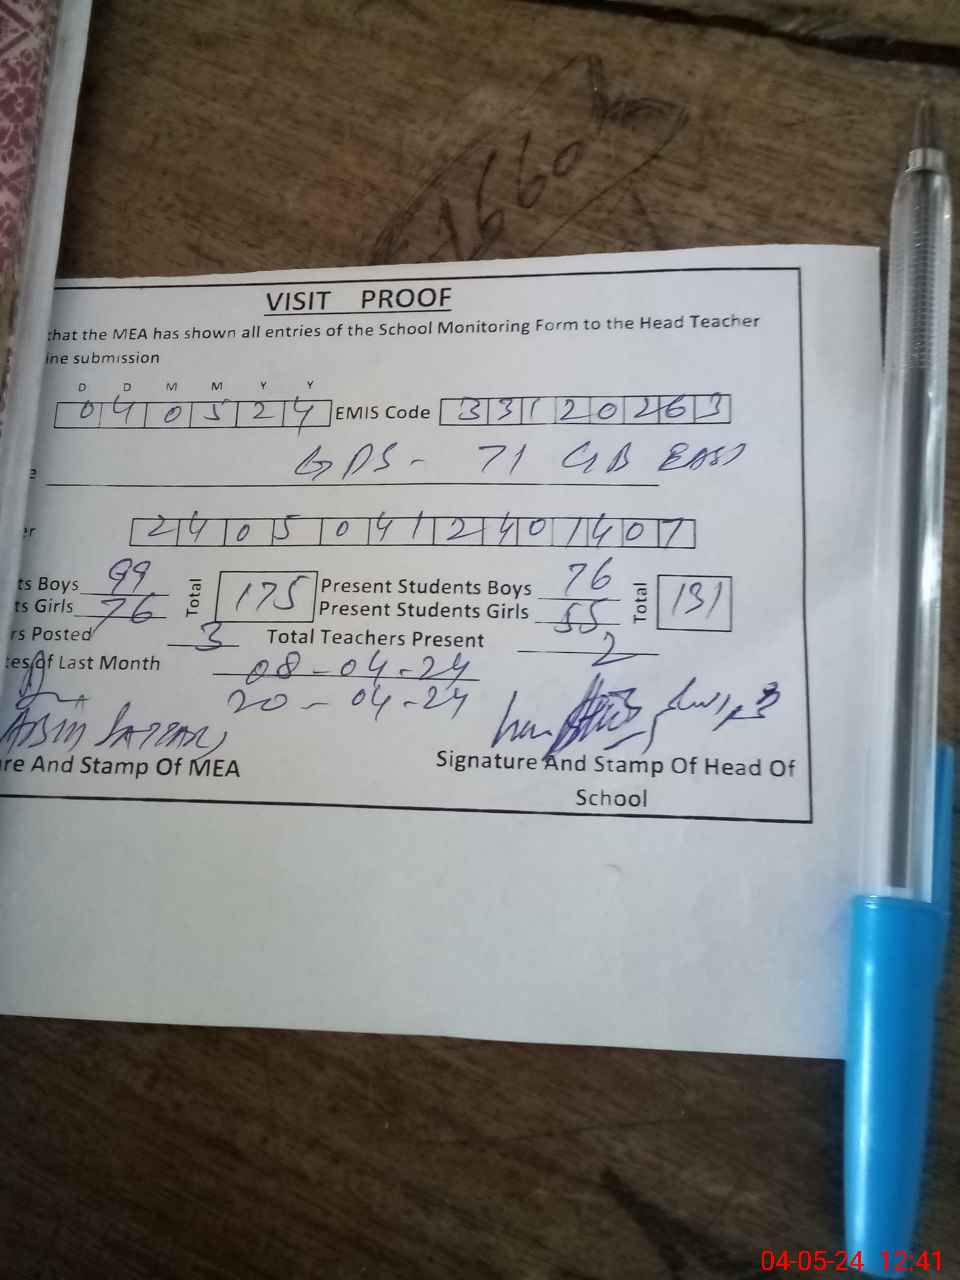 1660
VISIT PROOF
that the MEA has shown all entries of the School Monitoring Form to the Head Teacher
ine submission
D D M M Y Y
0 4 0 5 2 4 EMIS Code 3 3 1 2 0 2 6 3
e GPS - 71 GB EAST
er 2 4 0 5 0 4 1 2 4 0 1 4 0 7
ts Boys 99 Total 175 Present Students Boys 76 Total 131
ts Girls 76 Present Students Girls 55
rs Posted 3 Total Teachers Present 2
tes of Last Month 08-04-24
20-04-24
re And Stamp Of MEA Signature And Stamp Of Head Of
School
04-05-24 12:41